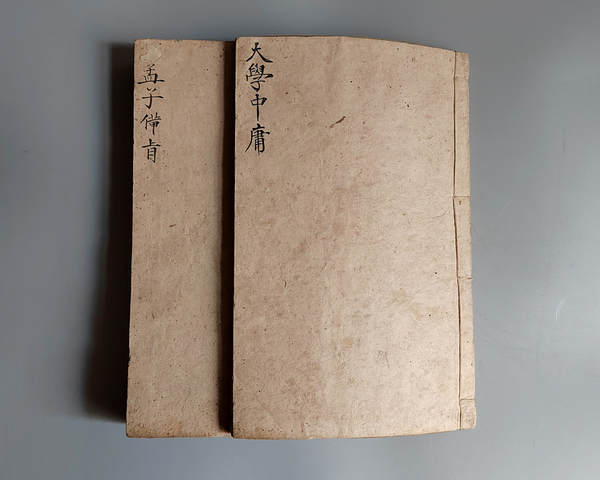 大學中庸
孟子備旨